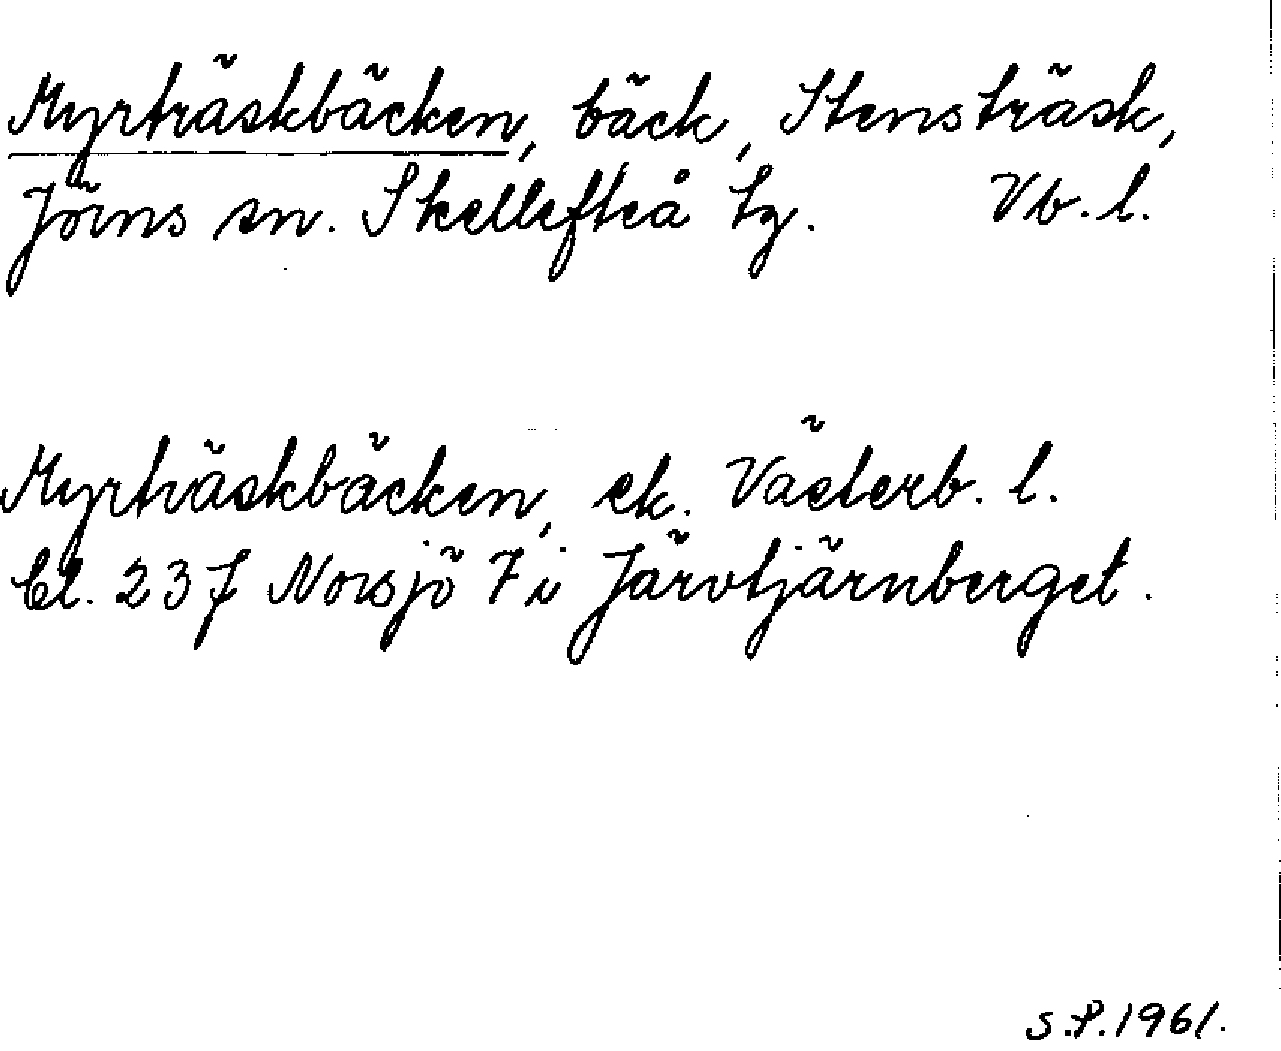 Myrträskbäcken, bäck, Stensträsk,
Jörns sn. Skellefteå tg. Vb. l.
Myrträskbäcken, ek. Västerb. l.
Bl. 23 J Norsjö 7 i Järvtjärnberget.
S.P. 1961.